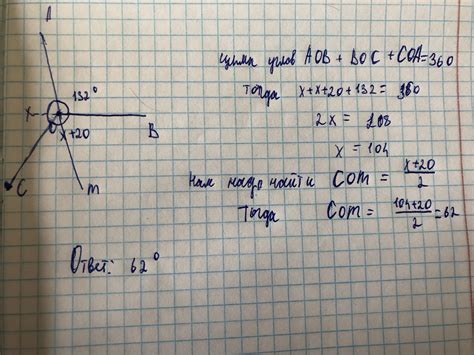 A
132°
x
O
x+20
B
C
M
Сумма углов AOB + BOC + COA = 360
Тогда x+x+20+132 = 360
2x = 208
x = 104
Нам надо найти COM = x+20/2
Тогда COM = 104+20/2 = 62
Ответ: 62°